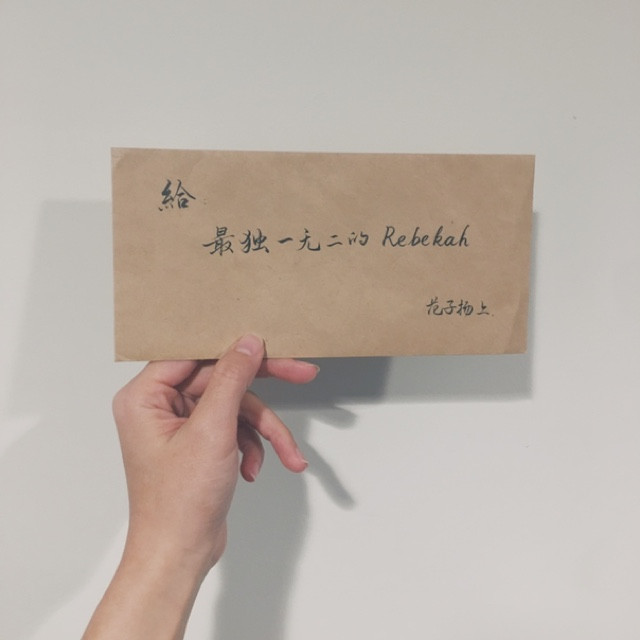 給
最独一无二的 Rebekah
花子扬上